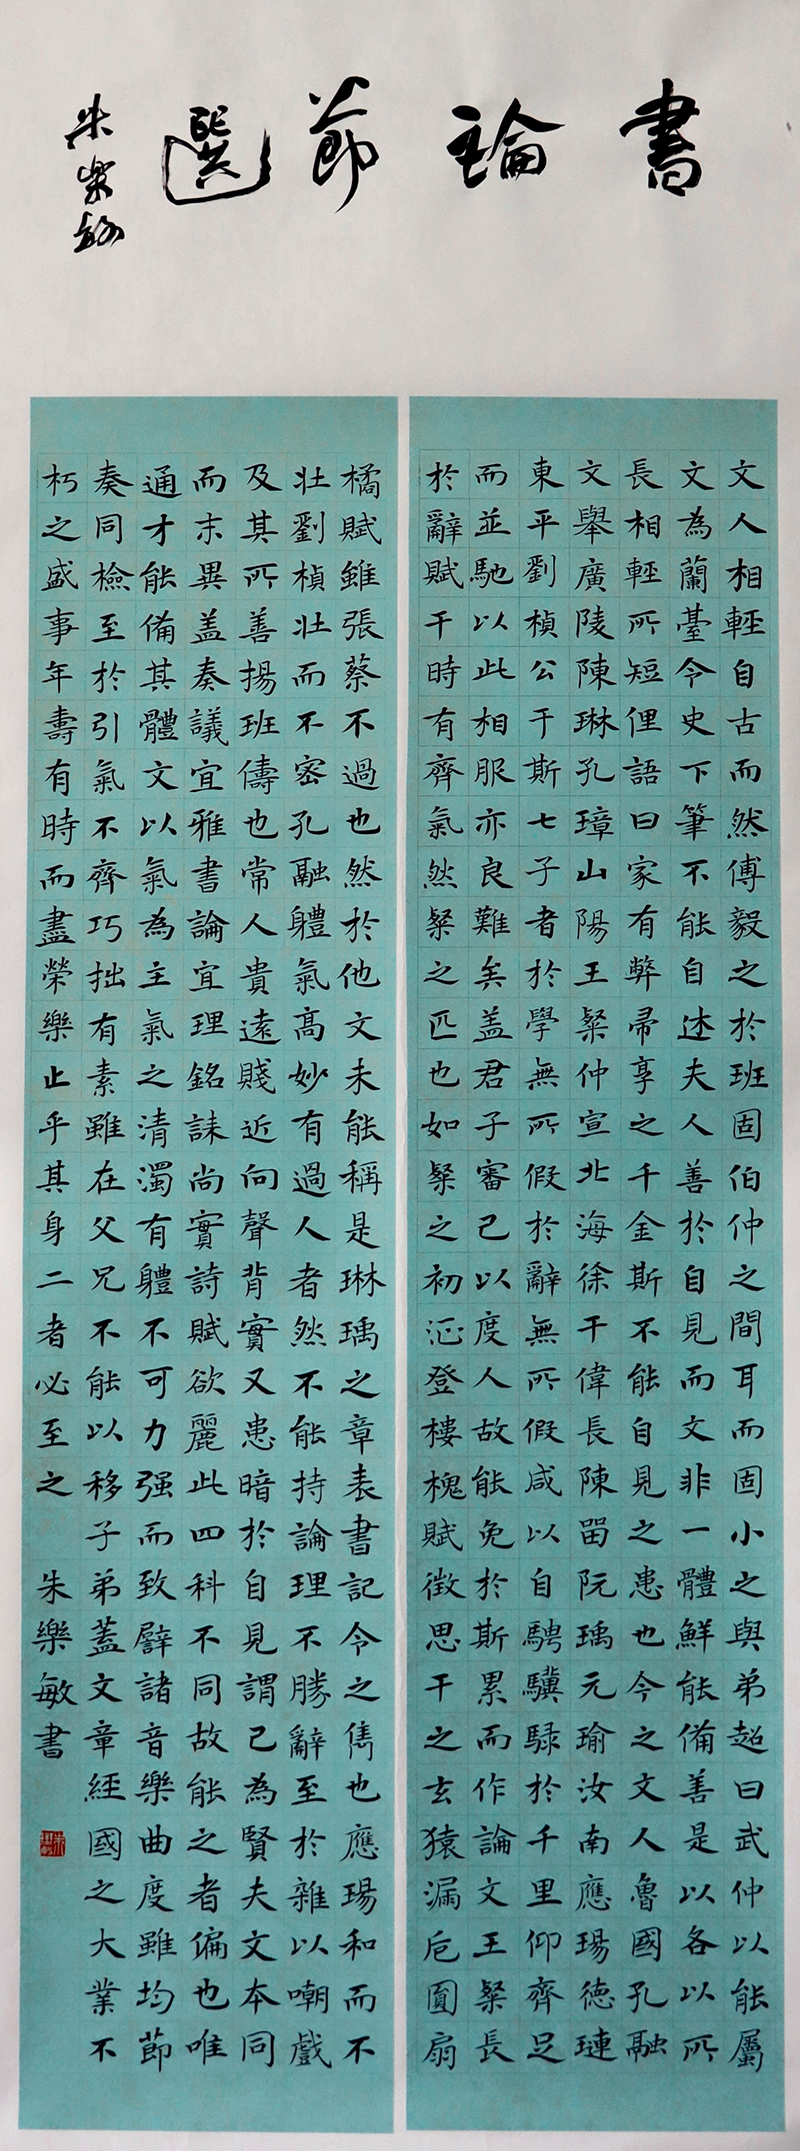 書論節選
朱樂敏
文人相輕自古而然傅毅之於班固伯仲之間耳而固小之與弟超曰武仲以能屬
文為蘭臺令史下筆不能自述夫人善於自見而文非一體鮮能備善是以各以所
長相輕所短俚語曰家有弊帚享之千金斯不能自見之患也今之文人魯國孔融
文舉廣陵陳琳孔璋山陽王粲仲宣北海徐干偉長陳留阮瑀元瑜汝南應瑒德璉
東平劉楨公干斯七子者於學無所假於辭無所假咸以自騁驥騄於千里仰齊足
而並馳以此相服亦良難矣盖君子審己以度人故能免於斯累而作論文王粲長
於辭賦干時有齊氣然粲之匹也如粲之初征登樓槐賦徵思干之玄猿漏卮圓扇
橘賦雖張蔡不過也然於他文未能稱是琳瑀之章表書記令之雋也應瑒和而不
壯劉楨壯而不密孔融體氣高妙有過人者然不能持論理不勝辭至於雜以嘲戲
及其所善揚班儔也常人貴遠賤近向聲背實又患暗於自見謂己為賢夫文本同
而末異盖奏議宜雅書論宜理銘誄尚實詩賦欲麗此四科不同故能之者偏也唯
通才能備其體文以氣為主氣之清濁有體不可力强而致譬諸音樂曲度雖均節
奏同檢至於引氣不齊巧拙有素雖在父兄不能以移子弟蓋文章經國之大業不
朽之盛事年壽有時而盡榮樂止乎其身二者必至之 朱樂敏書